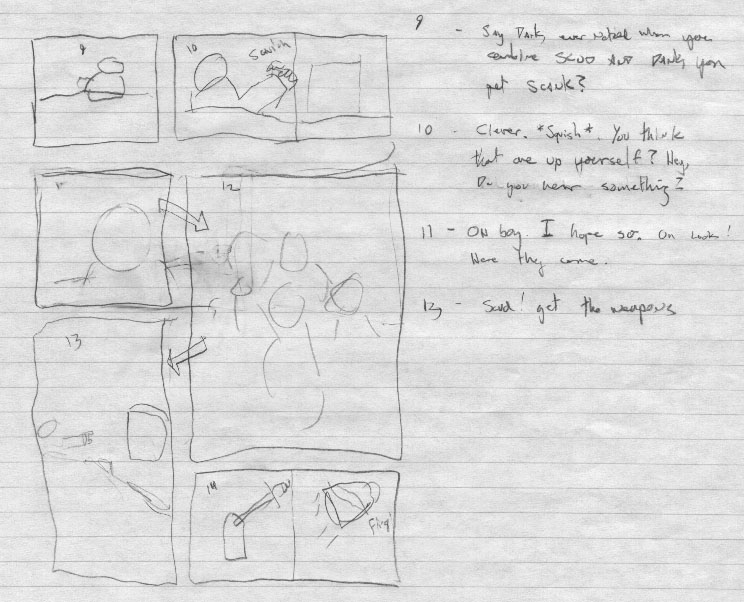 9
10
Squish
11
12
13
14
Fling!
9 - Say Dark, ever noticed when you
combine SCUD AND DARK, you
get SCANK?
10 - Clever. *Squish*. You think
that one up yourself? Hey,
Do you hear something?
11 - Oh boy. I hope so. Oh look!
Here they come.
12 - Scud! get the weapons